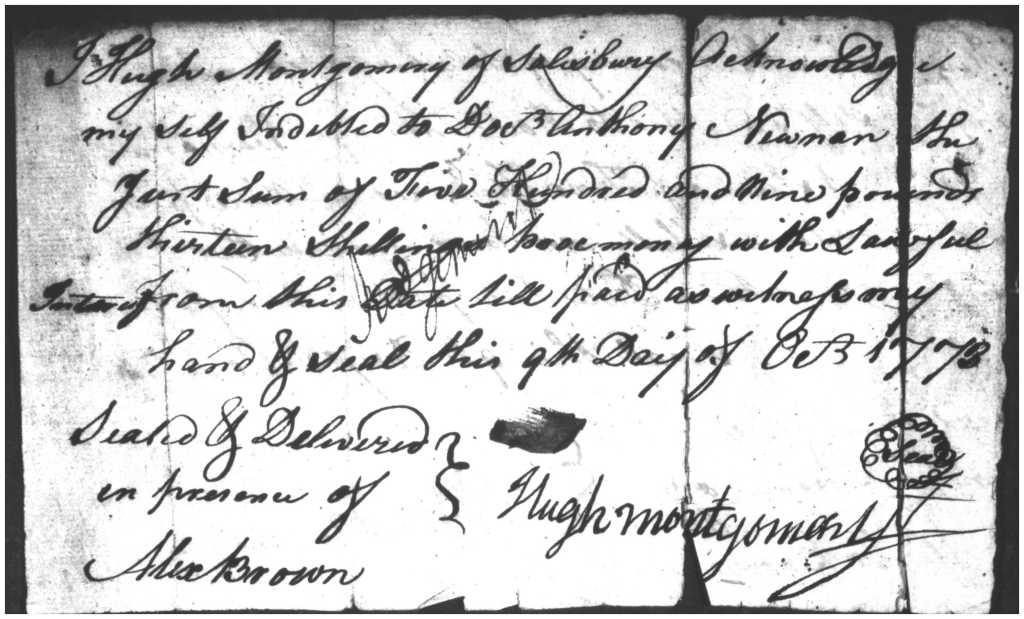 I Hugh Montgomery of Salisbury Acknowledge
my self Indebted to Doc.r Anthony Newnan the
Just Sum of Five Hundred and Nine pounds
thirteen Shillings proc money with Lawful
Interest from this Date till paid as witness my
hand & Seal this 9th Day of Oct.r 1773
Sealed & Delivered
in presence of
Seal
Hugh Montgomery
Alex Brown